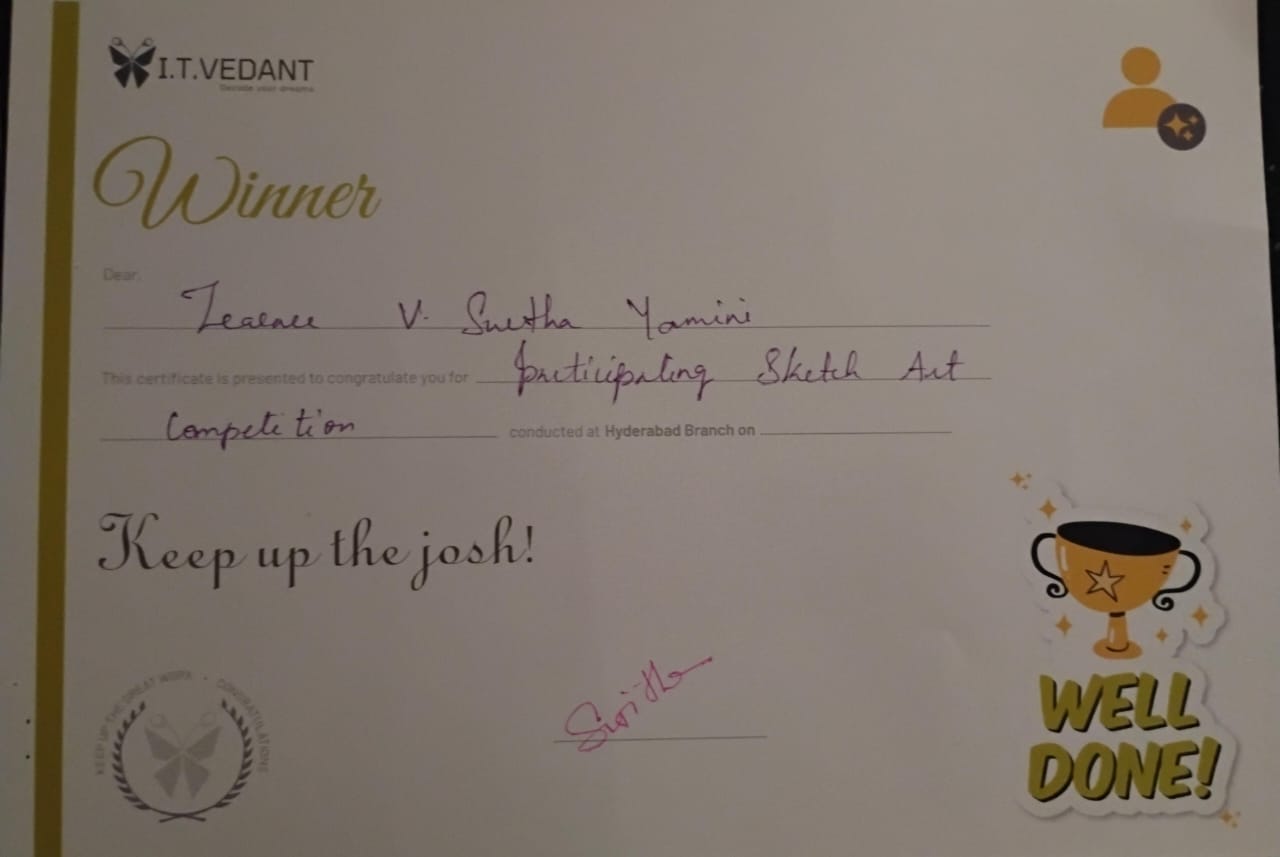 I.T.VEDANT
Decode your dreams
Winner
Dear,
V. Swetha Yamini
This certificate is presented to congratulate you for participating Sketch Art
Competition conducted at Hyderabad Branch on
Keep up the josh!
KEEP UP THE GREAT WORK • CONGRATULATIONS
WELL
DONE!